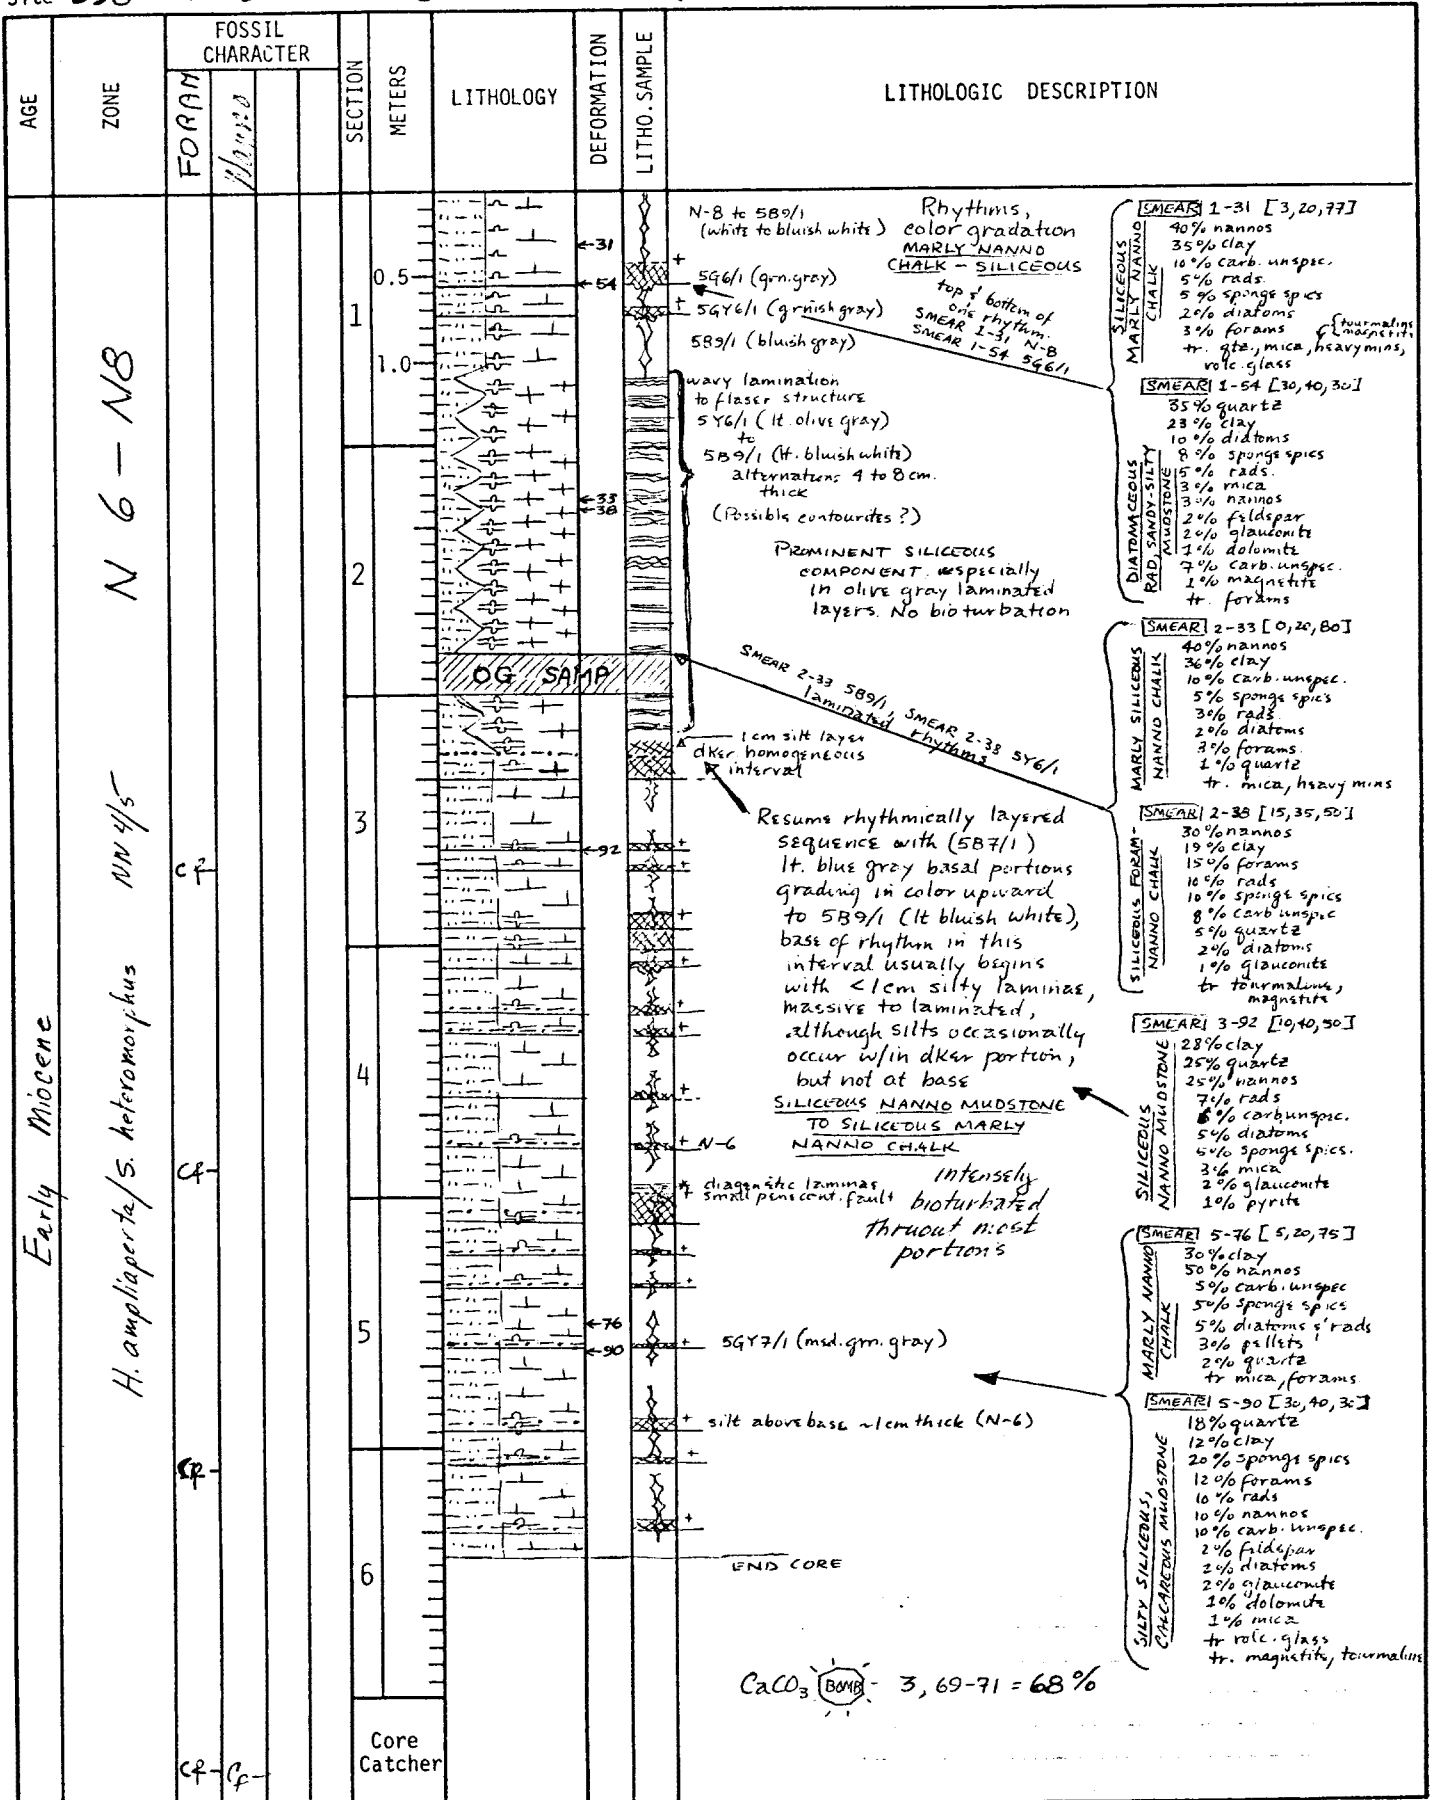 AGE
ZONE
FOSSIL
CHARACTER
FORAM
Nanno
SECTION
METERS
LITHOLOGY
DEFORMATION
LITHO. SAMPLE
LITHOLOGIC DESCRIPTION
Early Miocene
N 6 - N8
H. ampliaperta/S. heteromorphus NN 4/5
0.5
1.0
1
2
3
4
5
6
Core
Catcher
OG SAMP
31
54
33
38
92
76
90
N-8 to 5B9/1
(white to bluish white)
5G6/1 (grn. gray)
5GY6/1 (grnish gray)
5B9/1 (bluish gray)
Rhythms,
color gradation
MARLY NANNO
CHALK - SILICEOUS
top & bottom of
one rhythm.
SMEAR 1-31 N-8
SMEAR 1-54 5G6/1
wavy lamination
to flaser structure
5Y6/1 (lt. olive gray)
to
5B9/1 (lt. bluish white)
alternations 4 to 8 cm.
thick
(Possible contourites?)
PROMINENT SILICEOUS
COMPONENT especially
in olive gray laminated
layers. No bioturbation
SMEAR 2-33 5B9/1, SMEAR 2-38 5Y6/1
laminated rhythms
1 cm silt layer
dker homogeneous
interval
Resume rhythmically layered
sequence with (5B7/1)
lt. blue gray basal portions
grading in color upward
to 5B9/1 (lt bluish white),
base of rhythm in this
interval usually begins
with <1cm silty laminae,
massive to laminated,
although silts occasionally
occur w/in dker portion,
but not at base
SILICEOUS NANNO MUDSTONE
TO SILICEOUS MARLY
NANNO CHALK
N-6
diagenetic laminae
small penecont. fault
intensely
bioturbated
thruout most
portions
5GY7/1 (med. grn. gray)
silt above base ~1cm thick (N-6)
END CORE
CaCO3 BOMB - 3, 69-71 = 68%
SILICEOUS
MARLY NANNO
CHALK
SMEAR 1-31 [3,20,77]
40% nannos
35% clay
10% carb. unspec.
5% rads.
5% sponge spics
2% diatoms
3% forams {tourmaline
magnetite
tr. qtz., mica, heavy mins,
volc. glass
DIATOMACEOUS
RAD, SANDY-SILTY
MUDSTONE
SMEAR 1-54 [30,40,30]
35% quartz
23% clay
10% diatoms
8% sponge spics
5% rads.
3% mica
3% nannos
2% feldspar
2% glauconite
1% dolomite
7% carb. unspec.
1% magnetite
tr. forams
MARLY SILICEOUS
NANNO CHALK
SMEAR 2-33 [0,20,80]
40% nannos
36% clay
10% carb. unspec.
5% sponge spics
3% rads
2% diatoms
3% forams
1% quartz
tr. mica, heavy mins
SILICEOUS FORAM-
NANNO CHALK
SMEAR 2-38 [15,35,50]
30% nannos
19% clay
15% forams
10% rads
10% sponge spics
8% carb unspec
5% quartz
2% diatoms
1% glauconite
tr tourmaline,
magnetite
SILICEOUS
NANNO MUDSTONE
SMEAR 3-92 [10,40,50]
28% clay
25% quartz
25% nannos
7% rads
% carb unspec.
5% diatoms
5% sponge spics.
3% mica
2% glauconite
1% pyrite
MARLY NANNO
CHALK
SMEAR 5-76 [5,20,75]
30% clay
50% nannos
5% carb. unspec
5% sponge spics
5% diatoms & rads
3% pellets
2% quartz
tr mica, forams
SILTY SILICEOUS,
CALCAREOUS MUDSTONE
SMEAR 5-90 [30,40,30]
18% quartz
12% clay
20% sponge spics
12% forams
10% rads
10% nannos
10% carb. unspec.
2% feldspar
2% diatoms
2% glauconite
1% dolomite
1% mica
tr volc. glass
tr. magnetite, tourmaline